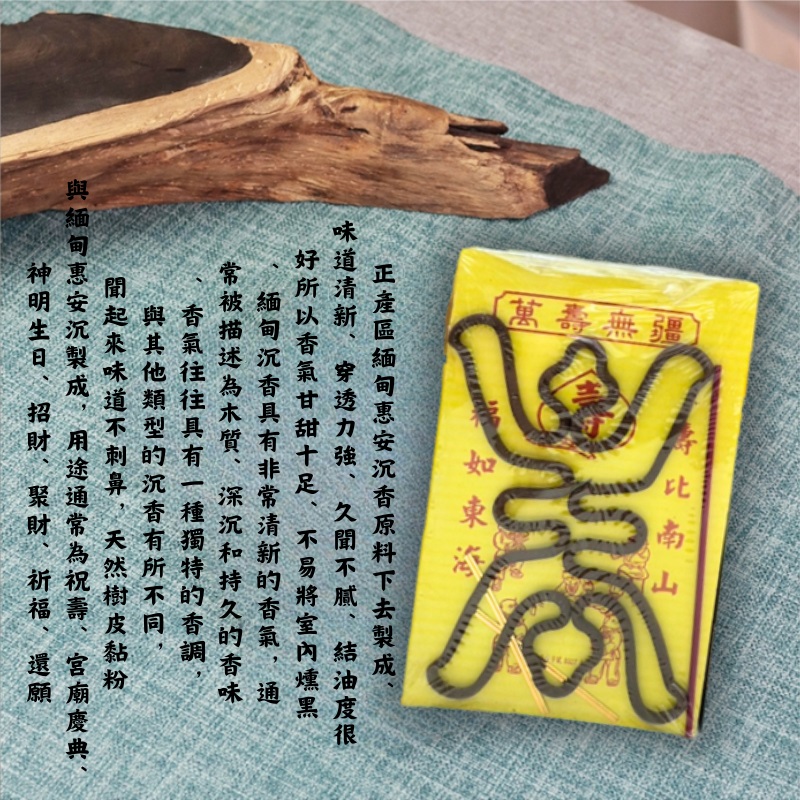 正產區緬甸惠安沉香原料下去製成、
味道清新、穿透力強、久聞不膩、結油度很
好所以香氣甘甜十足、不易將室內燻黑
、緬甸沉香具有非常清新的香氣，通
常被描述為木質、深沉和持久的香味
、香氣往往具有一種獨特的香調，
與其他類型的沉香有所不同，
聞起來味道不刺鼻，天然樹皮黏粉
與緬甸惠安沉製成，用途通常為祝壽、宮廟慶典、
神明生日、招財、聚財、祈福、還願
萬壽無疆
壽
壽比南山
福如東海